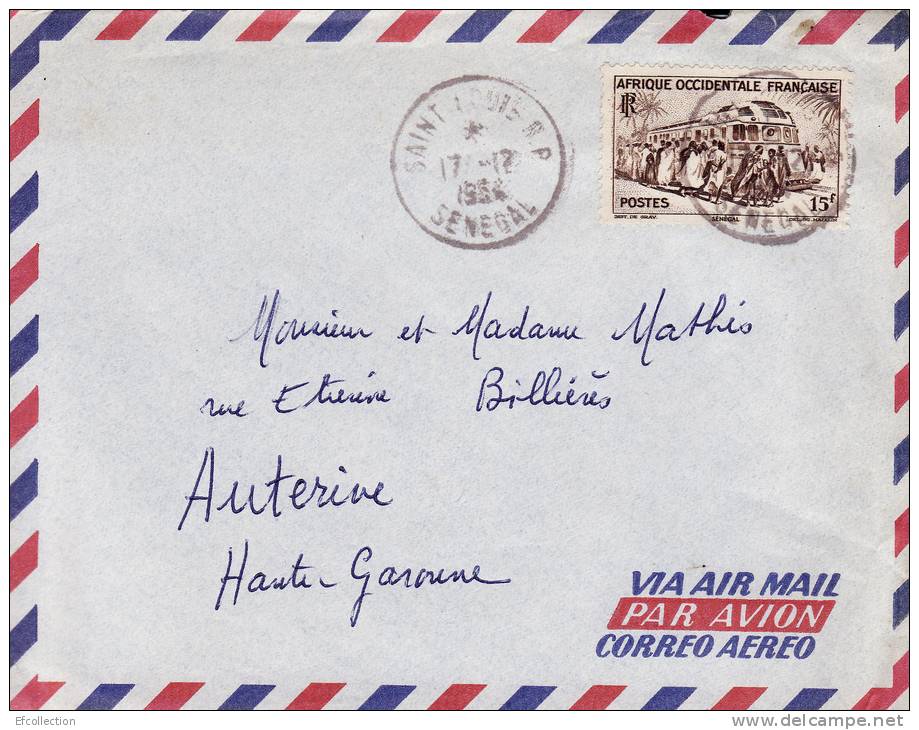 SAINT-LOUIS R.P
17 -12
1954
SENEGAL
AFRIQUE OCCIDENTALE FRANÇAISE
RF
POSTES
15f
SÉNÉGAL
Monsieur et Madame Mathis
rue Etienne Billières
Auterive
Haute-Garonne
VIA AIR MAIL
PAR AVION
CORREO AEREO
Efcollection
www.delcampe.net